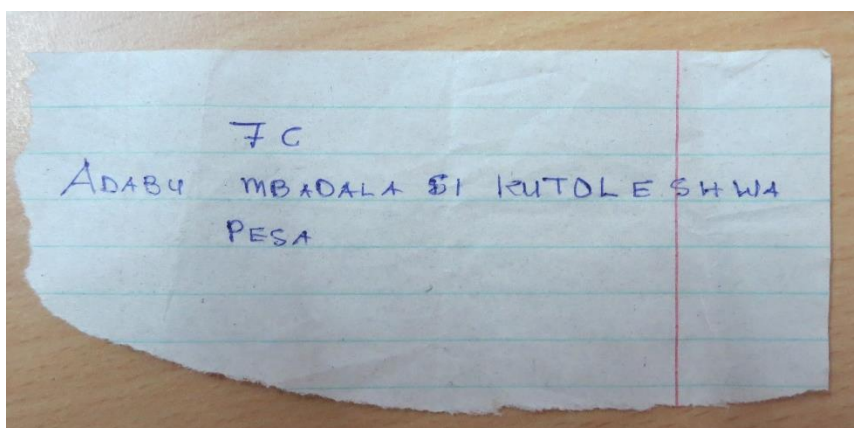 7C
ADABU MBADALA SI KUTOLESHWA
PESA